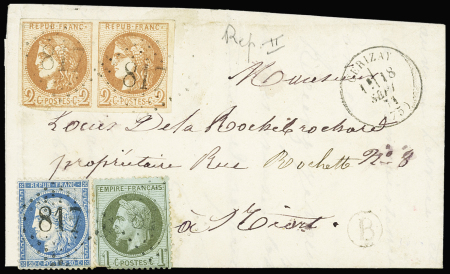 REPUB. FRANC. REPUB. FRANC.
2 C. POSTES C. 2 2 C. POSTES C. 2
817
Rep. II
CERIZAY
18
SEPT
71
(75)
Monsieur
Louis De la Rochebrochard
propriétaire Rue Rochette No 8
à Niort
B
REPUB. FRANC.
817
EMPIRE FRANÇAIS
1 C. POSTES C. 1